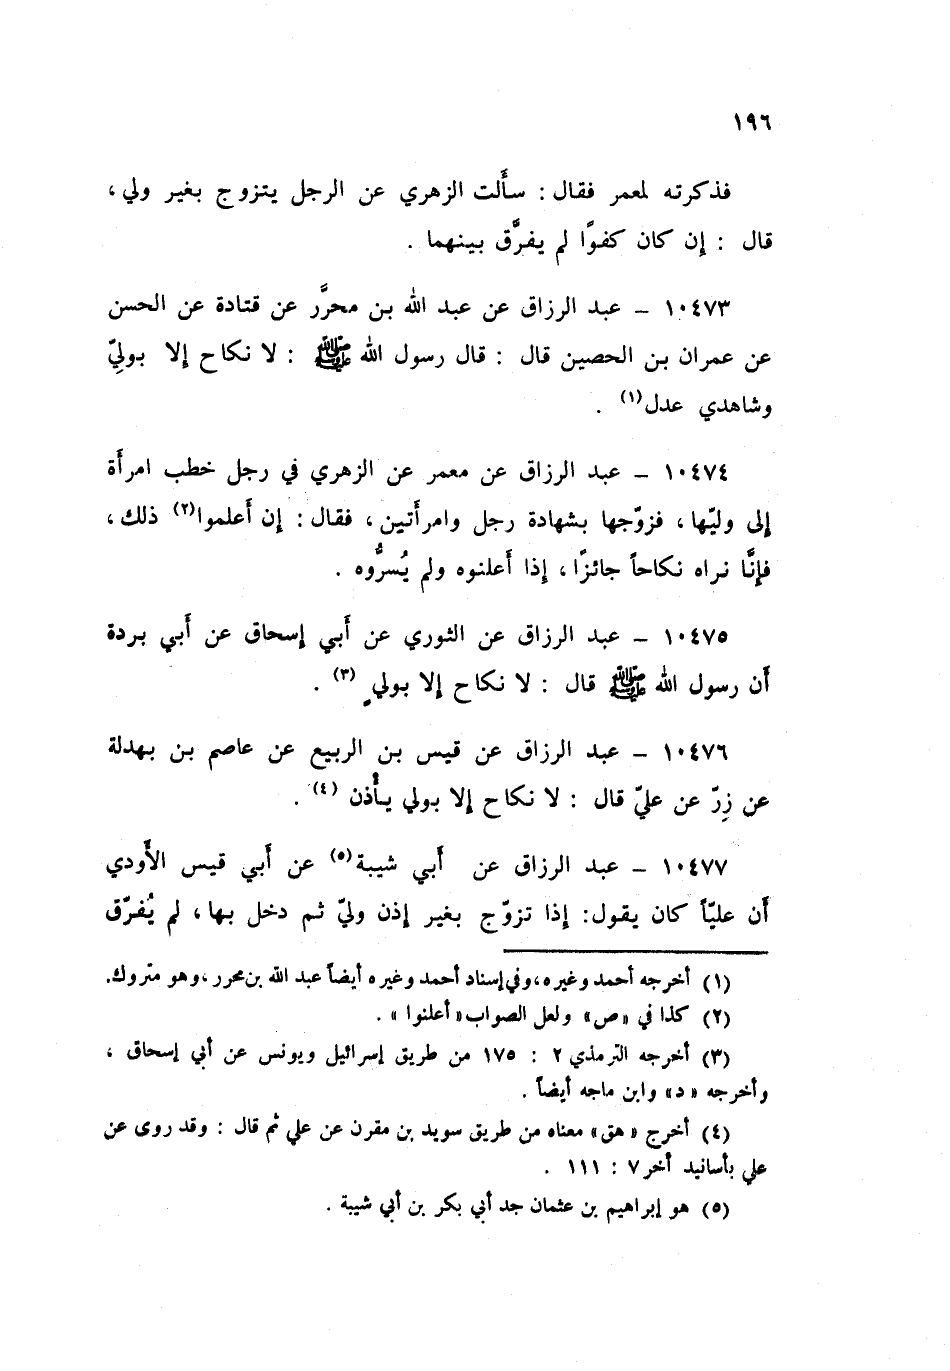 ١٩٦
فذكرته لمعمر فقال : سأَلت الزهري عن الرجل يتزوج بغير ولي ،
قال : إِن كان كفوًا لم يفرَّق بينهما .
١٠٤٧٣ – عبد الرزاق عن عبد الله بن محرَّر عن قتادة عن الحسن
عن عمران بن الحصين قال : قال رسول الله ﷺ : لا نكاح إِلا بوليّ
وشاهدي عدل(١) .
١٠٤٧٤ – عبد الرزاق عن معمر عن الزهري في رجل خطب امرأَة
إِلى وليّها ، فزوّجها بشهادة رجل وامرأَتين ، فقال : إِن أَعلموا(٢) ذلك ،
فإِنَّا نراه نكاحاً جائزًا ، إِذا أَعلنوه ولم يُسرُّوه .
١٠٤٧٥ – عبد الرزاق عن الثوري عن أَبي إِسحاق عن أَبي بردة
أَن رسول الله ﷺ قال : لا نكاح إِلا بولي(٣) .
١٠٤٧٦ – عبد الرزاق عن قيس بن الربيع عن عاصم بن بهدلة
عن زِرّ عن عليّ قال : لا نكاح إِلا بولي يأْذن (٤) .
١٠٤٧٧ – عبد الرزاق عن أَبي شيبة(٥) عن أَبي قيس الأَودي
أَن عليّاً كان يقول : إِذا تزوّج بغير إِذن وليّ ثم دخل بها ، لم يُفرّق
(١) أخرجه أحمد وغيره، وفي إسناد أحمد وغيره أيضاً عبد الله بن محرر ، وهو متروك.
(٢) كذا في «ص» ولعل الصواب «أعلنوا» .
(٣) أخرجه الترمذي ٢ : ١٧٥ من طريق إسرائيل ويونس عن أبي إسحاق ،
وأخرجه «د» وابن ماجه أيضاً .
(٤) أخرج «هق» معناه من طريق سويد بن مقرن عن علي ثم قال : وقد روى عن
علي بأسانيد أخر ٧ : ١١١ .
(٥) هو إبراهيم بن عثمان جد أبي بكر بن أبي شيبة .